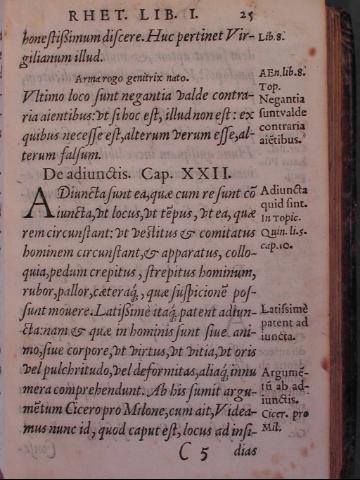 RHET. LIB. I. 25
honestißimum discere. Huc pertinet Vir-
gilianum illud.
Lib. 8.
Arma rogo genitrix nato.
Vltimo loco sunt negantia valde contra-
ria aientibus: vt si hoc est, illud non est: ex
quibus necesse est, alterum verum esse, al-
terum falsum.
AEn. lib. 8.
Top.
Negantia
sunt valde
contraria
aiētibus.
De adiunctis. Cap. XXII.
ADiuncta sunt ea, quæ cum re sunt cō
iuncta, vt locus, vt tēpus, vt ea, quæ
rem circunstant: vt vestitus & comitatus
hominem circunstant, & apparatus, collo-
quia, pedum crepitus, strepitus hominum,
rubor, pallor, cæteraq́, quæ suspicionē pos-
sunt mouere. Latißimè itaq́ patent adiun-
cta: nam & quæ in hominis sunt siue ani-
mo, siue corpore, vt virtus, vt vitia, vt oris
vel pulchritudo, vel deformitas, aliaq́ innu
mera comprehendunt. Ab his sumit argu-
mētum Cicero pro Milone, cum ait, Videa-
mus nunc id, quod caput est, locus ad insi-
Adiuncta
quid sint.
In Topic.
Quin. li. 5.
cap. 10.
Latissimè
patent ad
iuncta.
Argumē-
tū ab ad-
iunctis.
Cicer. pro
Mil.
C 5 dias